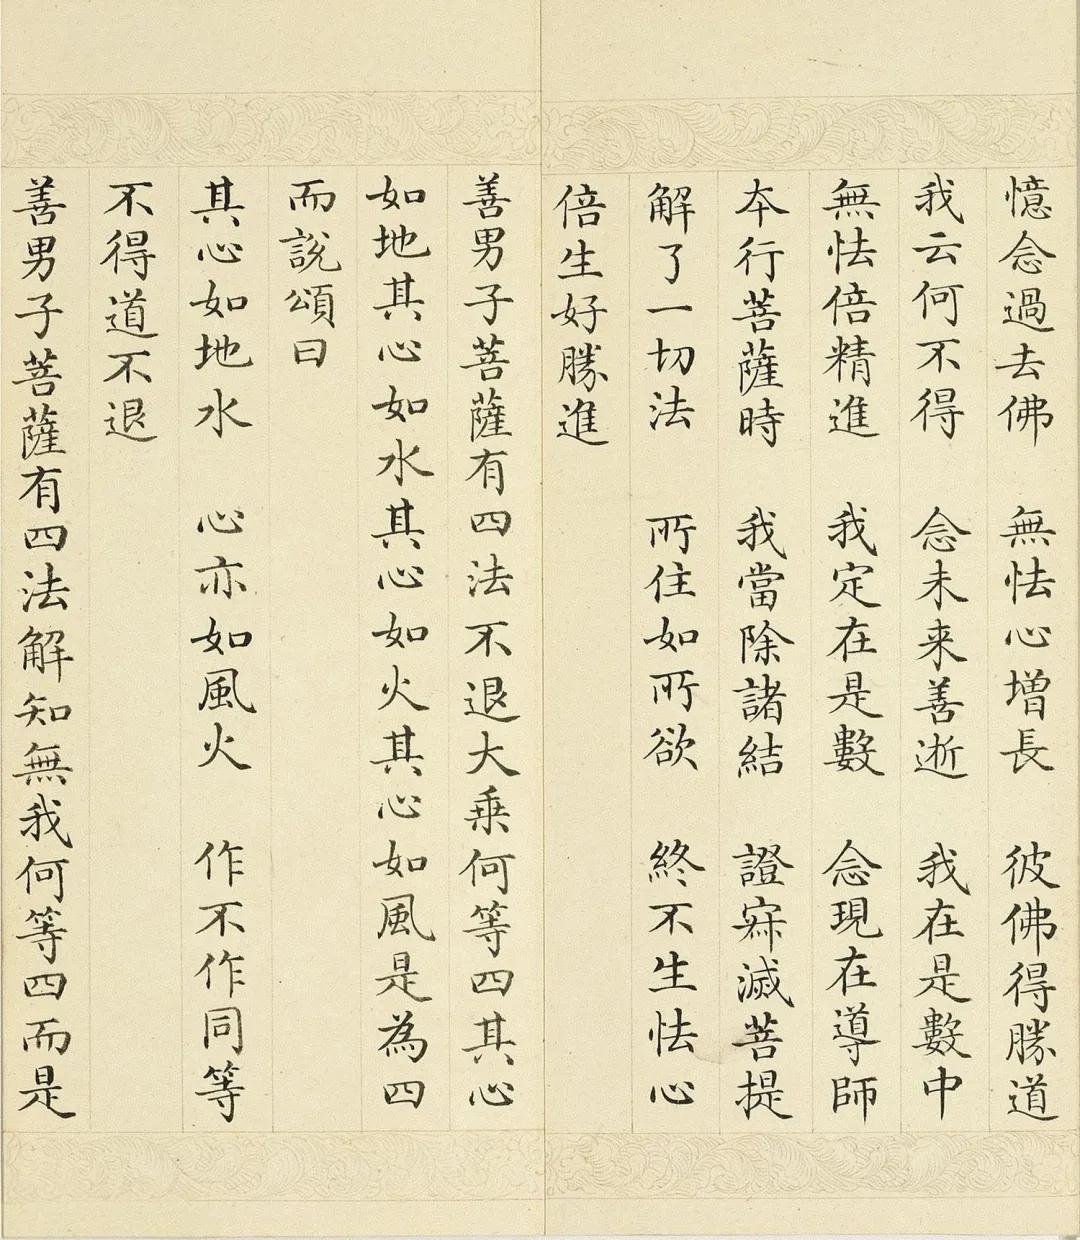 憶念過去佛　無怯心增長　彼佛得勝道
我云何不得　念未来善逝　我在是數中
無怯倍精進　我定在是數　念現在導師
本行菩薩時　我當除諸結　證寂滅菩提
解了一切法　所住如所欲　終不生怯心
倍生好勝進
善男子菩薩有四法不退大乗何等四其心
如地其心如水其心如火其心如風是為四
而說頌曰
其心如地水　心亦如風火　作不作同等
不得道不退
善男子菩薩有四法解知無我何等四而是